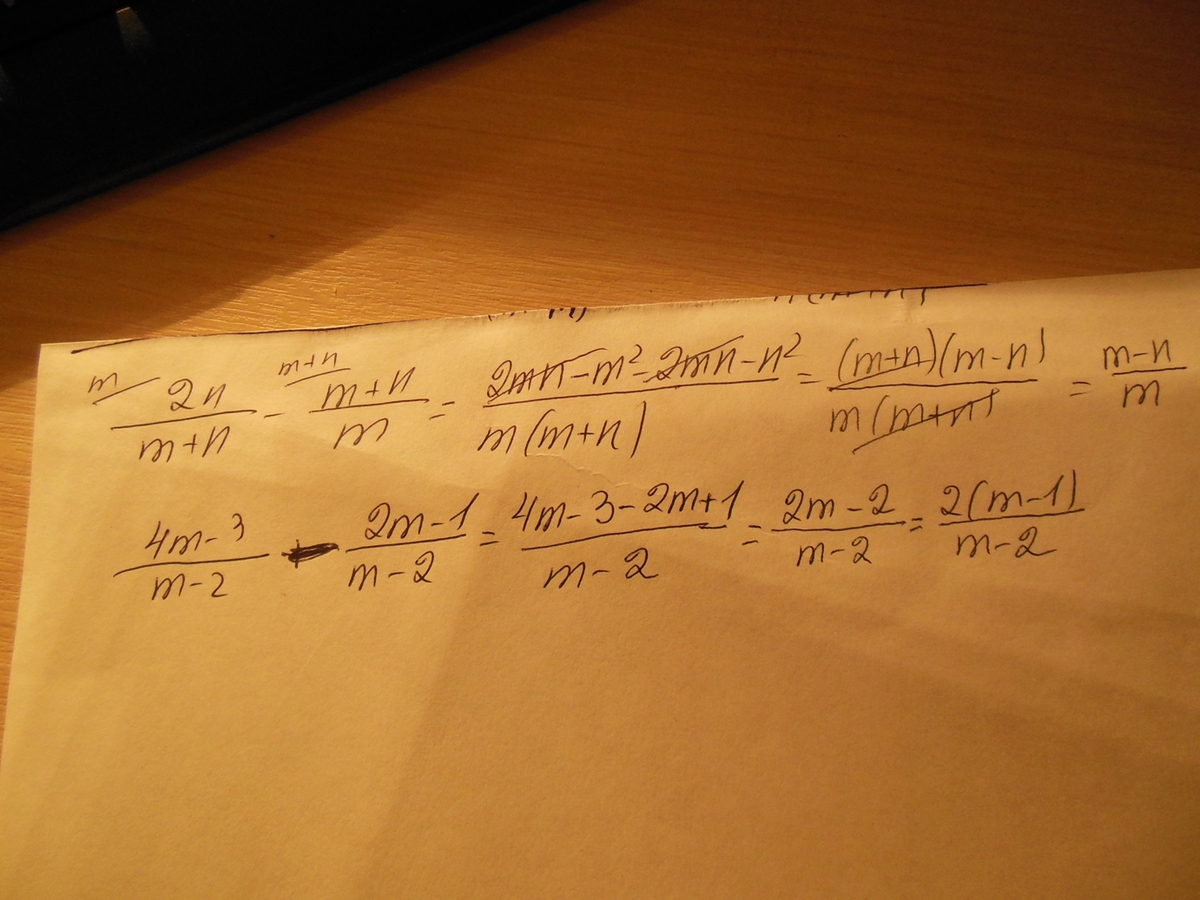 m 2n/(m+n) - m+n (m+n)/m = (2mn-m²-2mn-n²)/(m(m+n)) = ((m+n)(m-n))/(m(m+n)) = (m-n)/m
(4m-3)/(m-2) - (2m-1)/(m-2) = (4m-3-2m+1)/(m-2) = (2m-2)/(m-2) = (2(m-1))/(m-2)